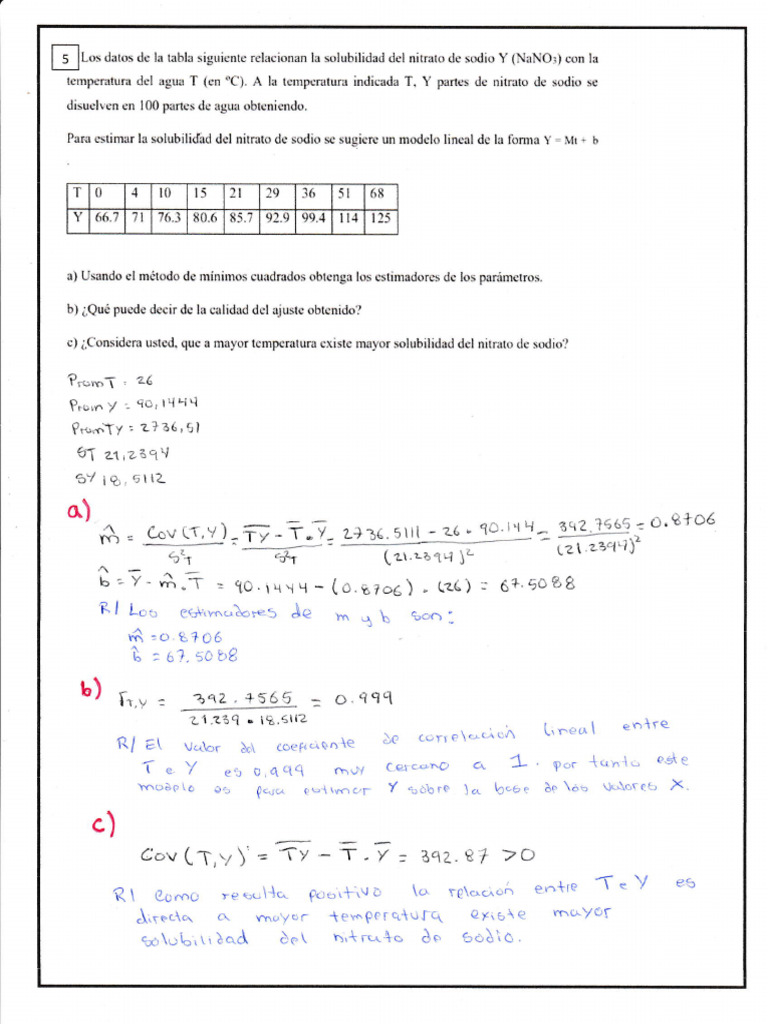 5 Los datos de la tabla siguiente relacionan la solubilidad del nitrato de sodio Y (NaNO₃) con la
temperatura del agua T (en ºC). A la temperatura indicada T, Y partes de nitrato de sodio se
disuelven en 100 partes de agua obteniendo.
Para estimar la solubilidad del nitrato de sodio se sugiere un modelo lineal de la forma Y = Mt + b
.
T 0 4 10 15 21 29 36 51 68
Y 66.7 71 76.3 80.6 85.7 92.9 99.4 114 125
a) Usando el método de mínimos cuadrados obtenga los estimadores de los parámetros.
b) ¿Qué puede decir de la calidad del ajuste obtenido?
c) ¿Considera usted, que a mayor temperatura existe mayor solubilidad del nitrato de sodio?
Prom T = 26
Prom Y = 90,1444
Prom TY = 2736,51
ST 21,2394
SY 18,5112
a)
m̂ = Cov(T,Y) / S²T = (T̅Y̅ - T̅ . Y̅) / S²T = (2736.5111 - 26 * 90.144) / (21.2394)² = 392.7565 / (21.2394)² = 0.8706
b̂ = Y̅ - m̂ . T̅ = 90.1444 - (0.8706) . (26) = 67.5088
R/ Los estimadores de m y b son:
m̂ = 0.8706
b̂ = 67.5088
b) rT,Y = 392.7565 / (21.239 * 18.5112) = 0.999
R/ El valor del coeficiente de correlación lineal entre
T e Y es 0,999 muy cercano a 1. por tanto este
modelo es para estimar Y sobre la base de los valores X.
c)
Cov(T,Y) = T̅Y̅ - T̅ . Y̅ = 392.87 > 0
R/ Como resulta positivo la relación entre T e Y es
directa a mayor temperatura existe mayor
solubilidad del nitrato de sodio.